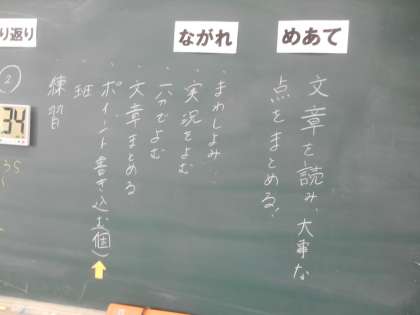 めあて
文章を読み、大事な
点をまとめる。
ながれ
・まわしよみ
・実況をよむ
・一分でよむ
・文章まとめる
・ポイント書き込む(個)
・班
練習
り返り
2
34
35